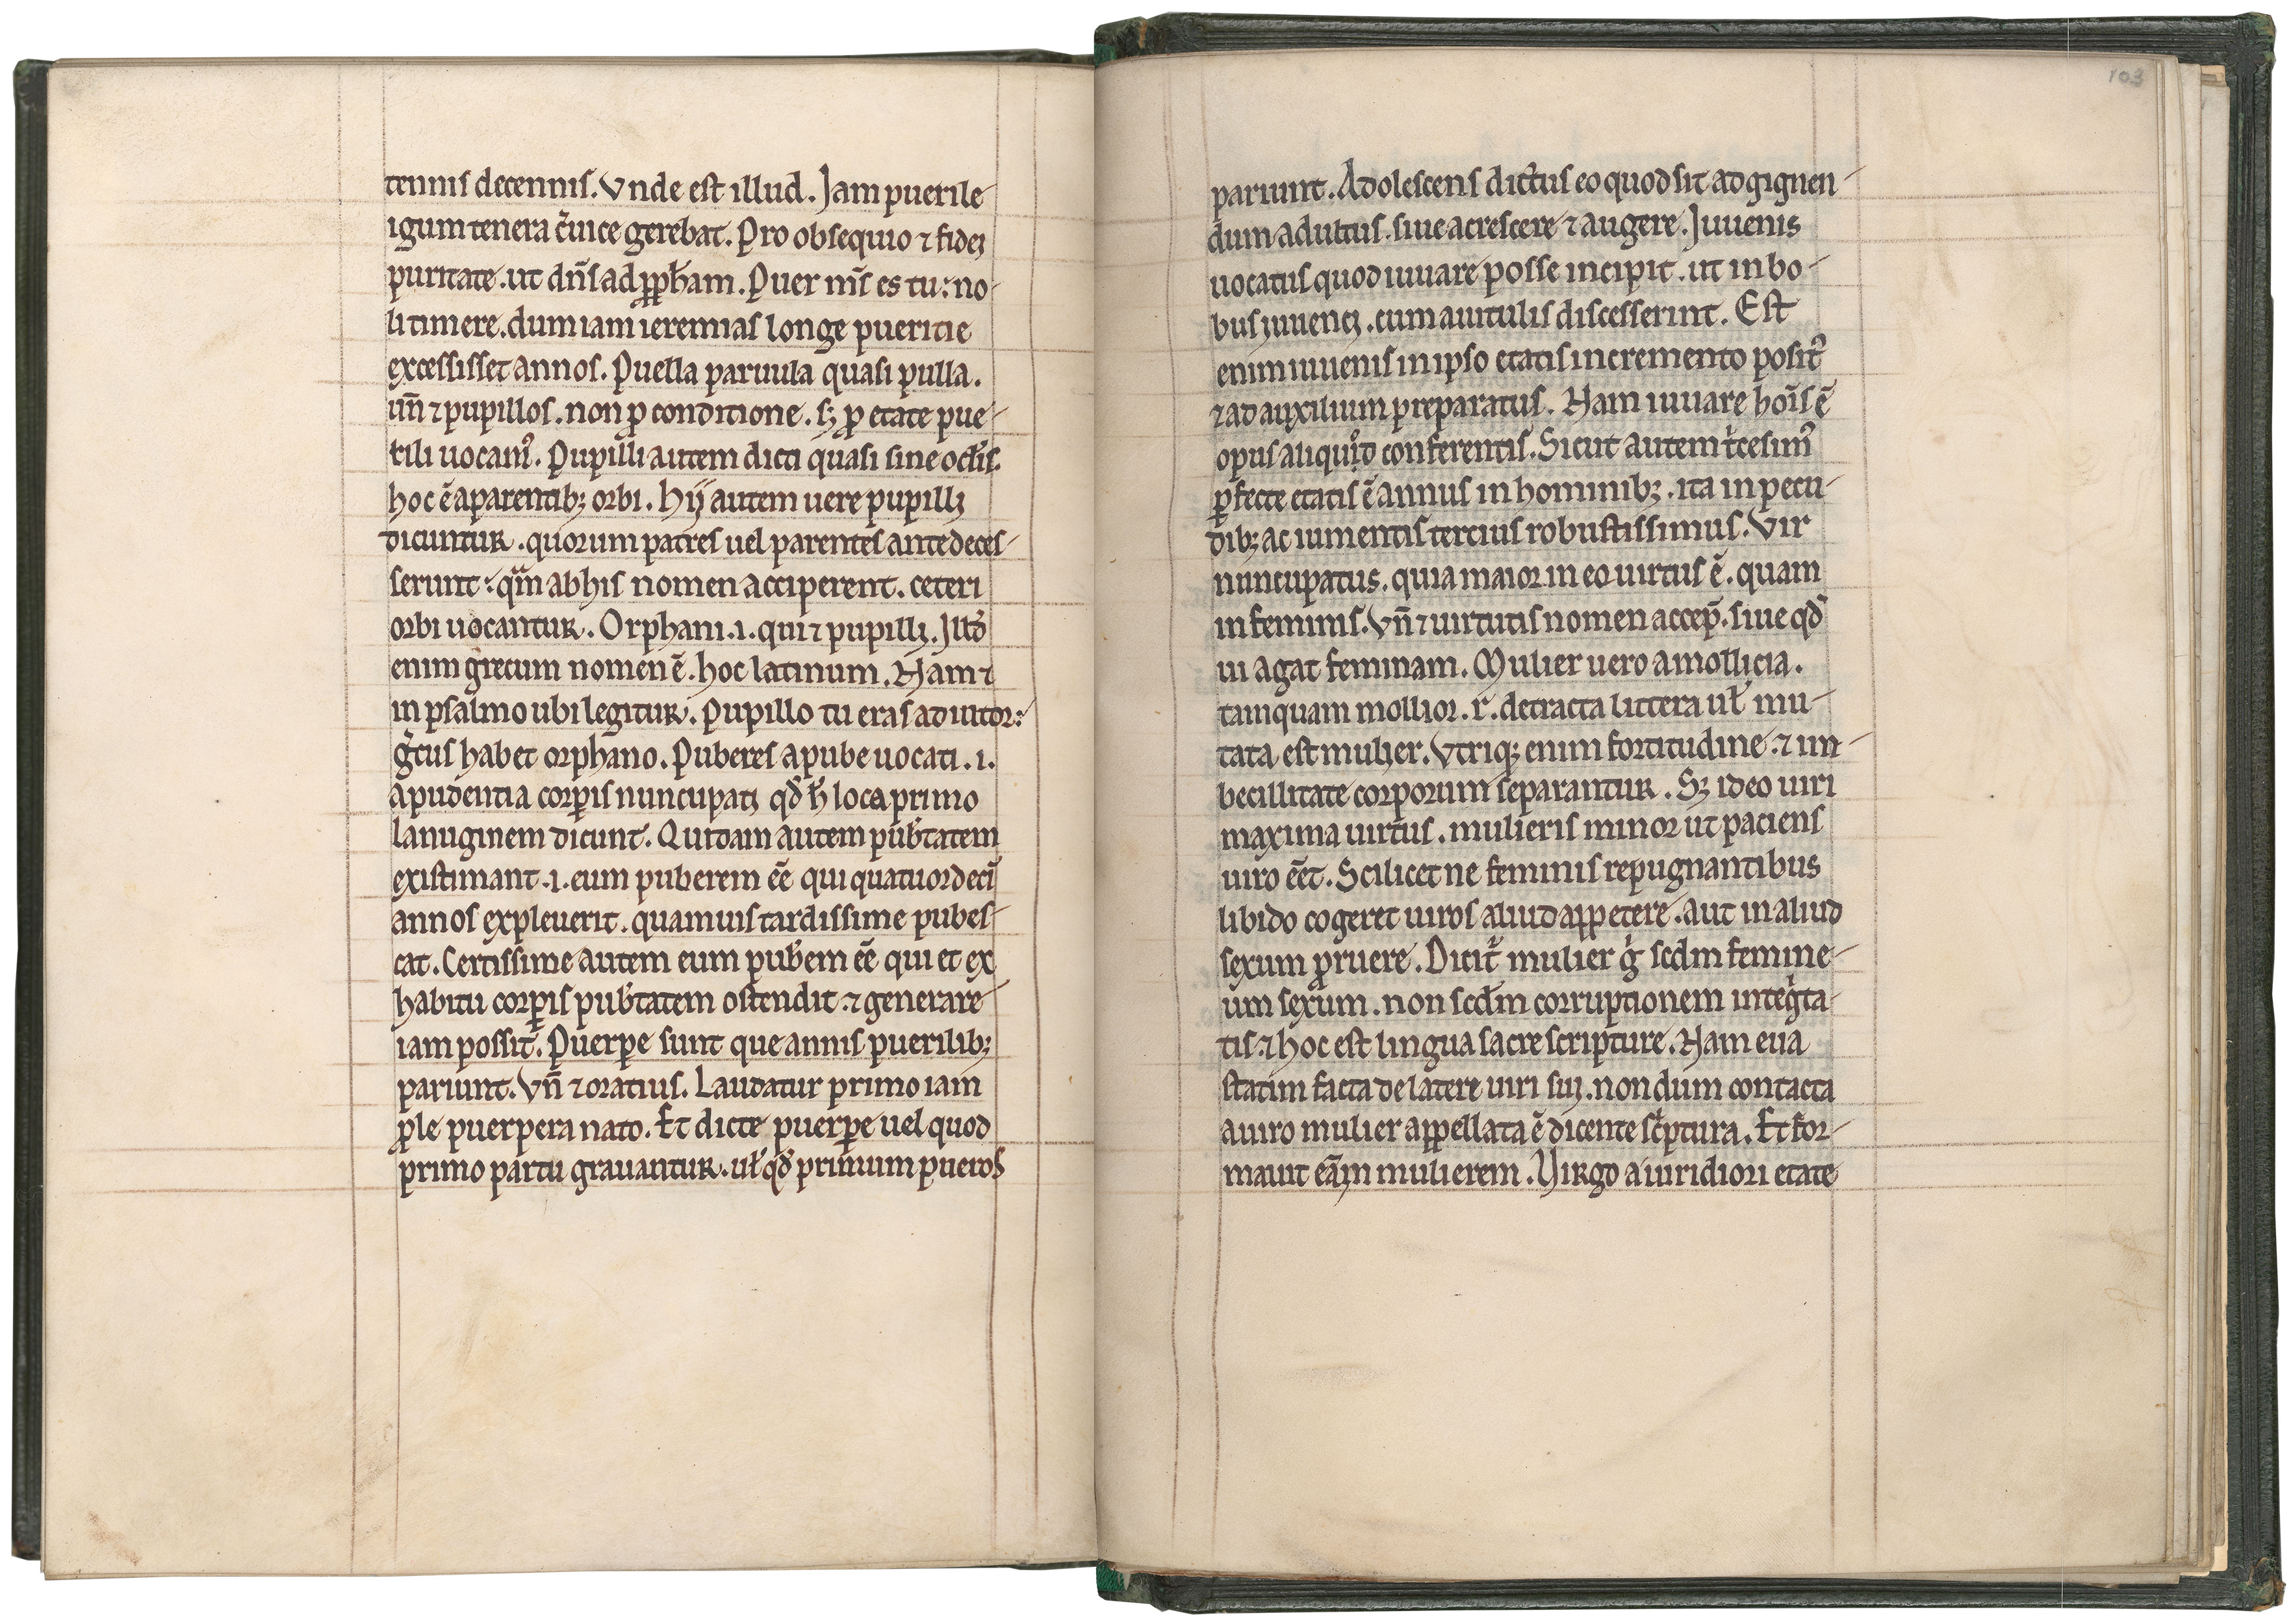 tennis decennis. Vnde est illud. Jam puerile
igum tenera c̄uice gerebat. Pro obsequio ⁊ fidei
puritate. ut dn̄s ad ꝓpham. Puer m̄s es tu: no-
li timere. dum iam ieremias longe pueritie
excessisset annos. Puella paruula quasi pulla.
un̄ ⁊ pupillos. non ꝓ conditione. sꝫ ꝓ etate pue-
rili uocamꝰ. Pupilli autem dicti quasi sine oclis.
hoc ē a parentibꝫ orbi. hij autem uere pupilli
dicuntur. quorum patres uel parentes ante deces-
serunt: qm̄ ab his nomen acciperent. ceteri
orbi uocantur. Orphani .i. qui ⁊ pupilli. Illd̄
enim grecum nomen ē. hoc latinum. Nam ⁊
in psalmo ubi legitur. Pupillo tu eras adiutor:
gͨcus habet orphano. Puberes a pube uocati .i.
a pudentia corꝑis nuncupati qd̄ h̄ loca primo
lanuginem dicunt. Quidam autem pub̄tatem
existimant .i. eum puberem ēē qui quatuordecī
annos expleuerit. quamuis tardissime pubes-
cat. Certissime autem eum pub̄em ēē qui et ex
habitu corꝑis pub̄tatem ostendit ⁊ generare
iam possit. Puerꝑe sunt que annis puerilibꝫ
pariunt. Vn̄ ⁊ oratius. Laudatur primo iam
ple puerpera nato. Et dicte puerꝑe uel quod
primo partu grauantur. ul̄ qd̄ primum pueros
103
pariunt. Adolescens dictus eo quod sit ad gignen-
dum adultus. siue a crescere ⁊ augere. Juuenis
uocatus quod iuuare posse incipit. ut in bo-
bus iuuenci. cum a uitulis discesserint. Est
enim iuuenis in ipso etatis incremento positꝰ
⁊ ad auxilium preparatus. Nam iuuare hoīs ē
opus aliquod conferentis. Sicut autem tͥcesimꝰ
ꝑfecte etatis ē annus in hominibꝫ. ita in pecu-
dibꝫ ac iumentis tercius robustissimus. Vir
nuncupatus. quia maior in eo uirtus ē. quam
in feminis. Vn̄ ⁊ uirtutis nomen accep̄. siue qd̄
ui agat feminam. Mulier uero a mollicia.
tamquam mollior. r. detracta littera ul̄ mu-
tata est mulier. Vtriqꝫ enim fortitudine ⁊ im-
becillitate corporum separantur. Sꝫ ideo uiri
maxima uirtus. mulieris minor ut paciens
uiro eēt. Scilicet ne feminis repugnantibus
libido cogeret uiros aliud appetere. aut in aliud
sexum ꝓruere. Dicit᷑ mulier gͥ scdm femine-
um sexum. non scdm corruptionem integͥta-
tis. ⁊ hoc est lingua sacre scripture. Nam eua
statim facta de latere uiri sui. nondum contacta
a uiro mulier appellata ē dicente scͥptura. Et for-
mauit eam in mulierem. Virgo a uiridiori etate